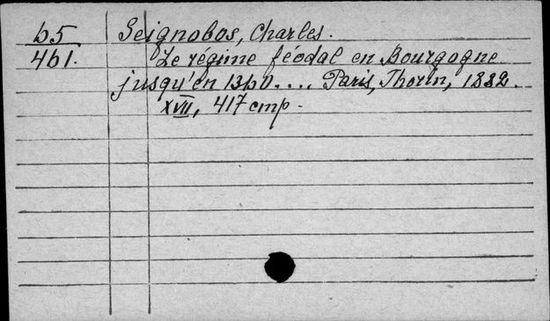 65 Seignobos, Charles.
461. Le régime féodal en Bourgogne
jusqu'en 1360.... Paris, Thorin, 1882.
XVII, 417 cmp.